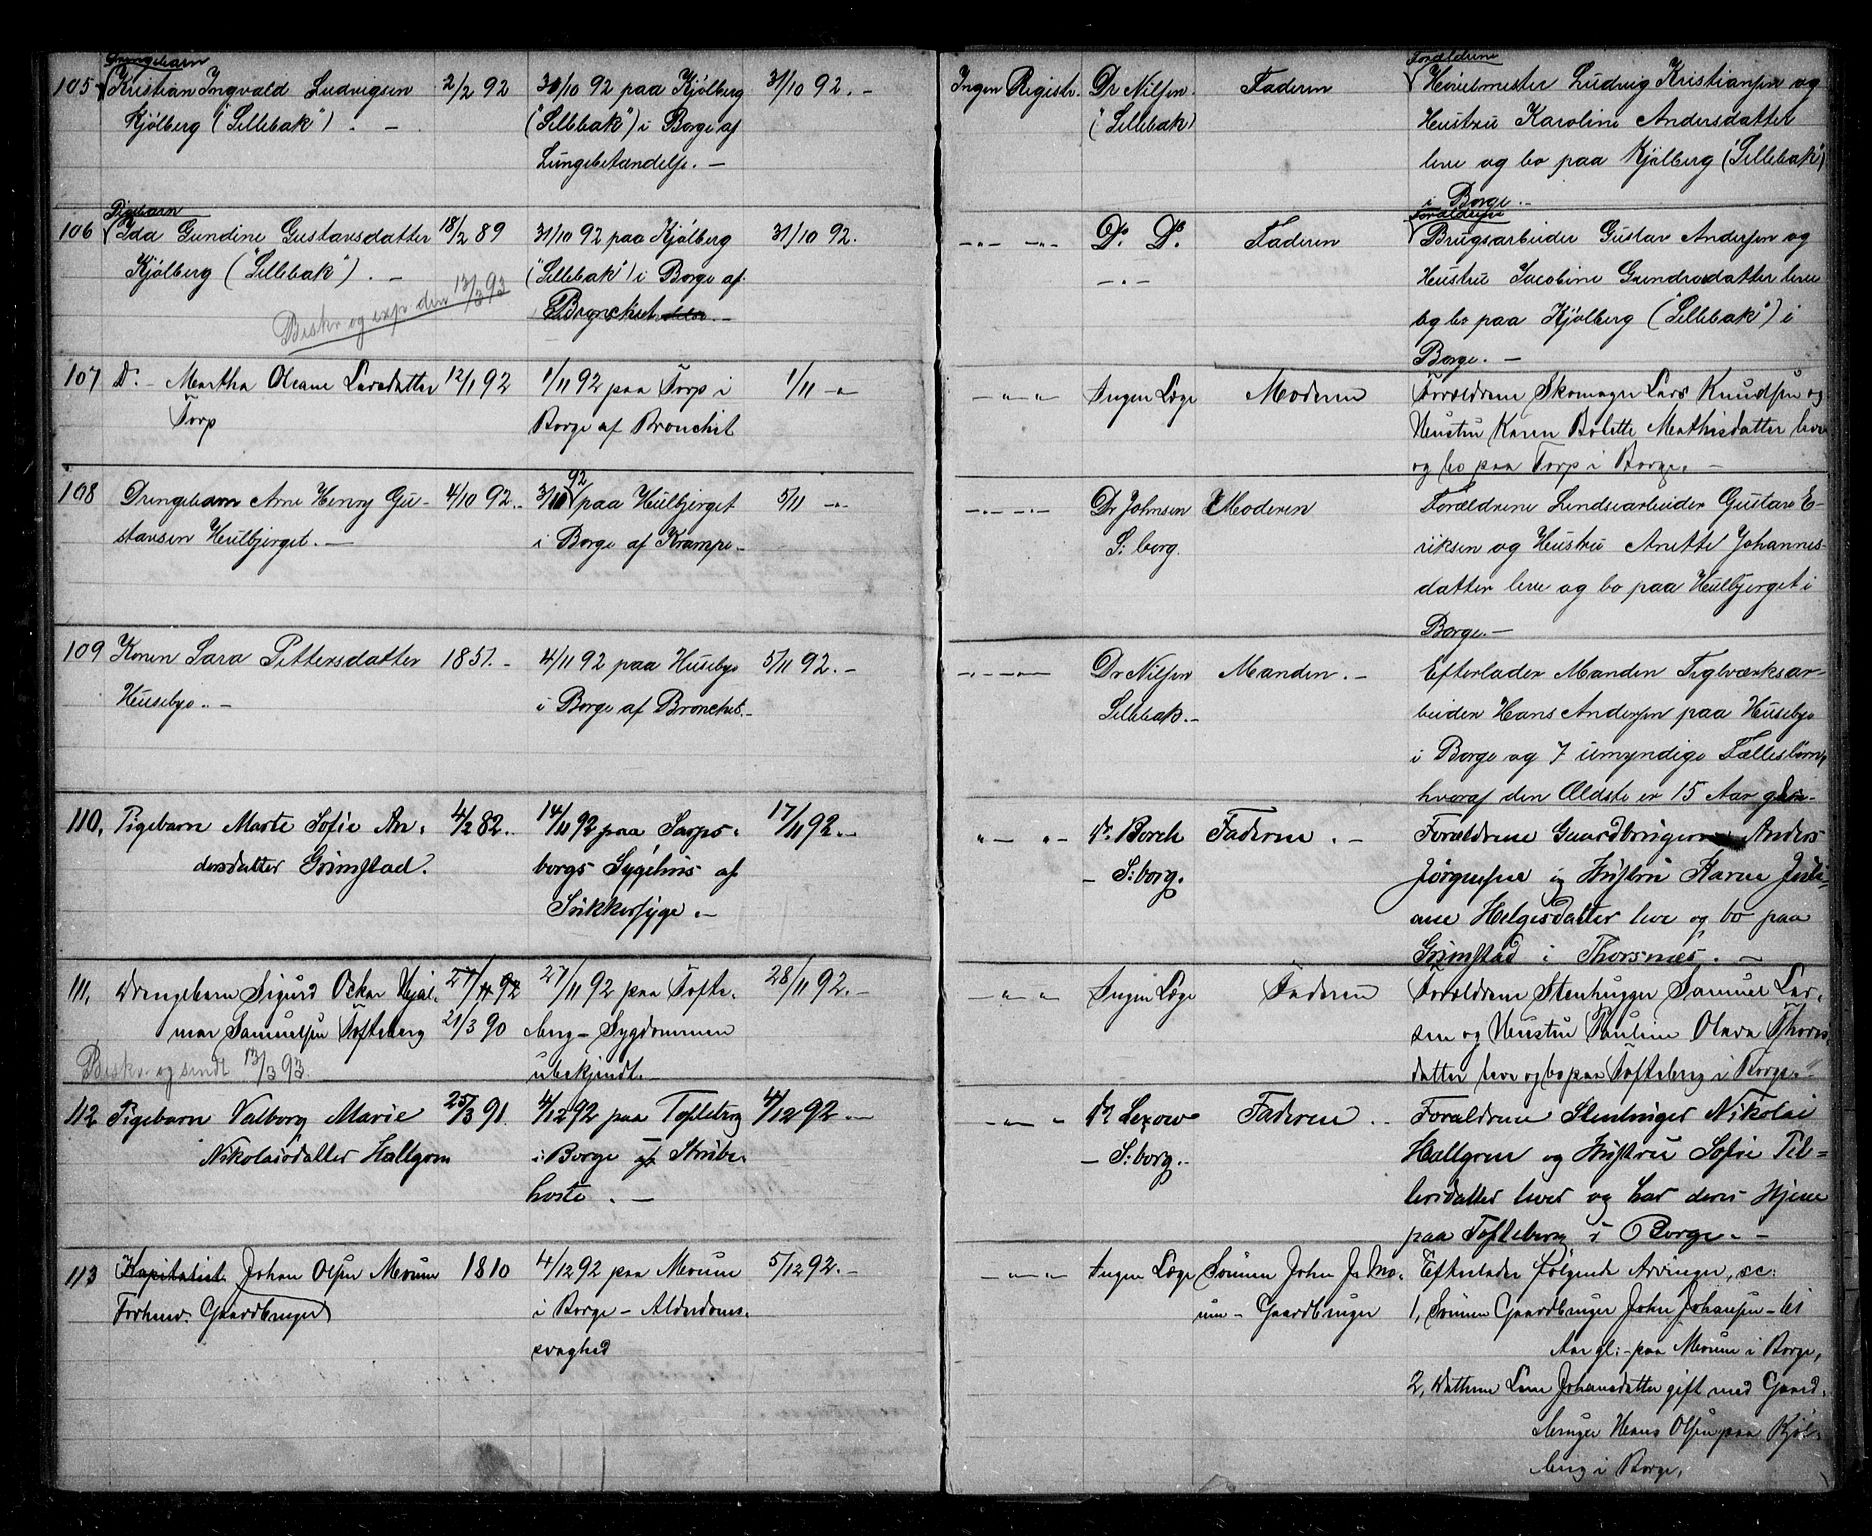 Drengebarn
105 Kristian Ingvald Ludvigsen 2/2 92 30/10 92 paa Kjølberg 31/10 92. — Ingen Registr. Dr Nilsen Faderen
Kjølberg ("Lillebak") . — ("Lillebak") i Borge af ("Lillebak)
Lungebetændelse. —
Forældrene
Høvelmester Ludvig Kristiansen og
Hustru Karoline Andersdatter
leve og bo paa Kjølberg ("Lillebak")
i Borge. —
Pigebarn
106 Ida Gundine Gustavsdatter 18/2 89 31/10 92 paa Kjølberg 31/10 92. —"— —"— Do. Do. Faderen
Kjølberg ("Lillebak") . — ("Lillebak") i Borge af — " —
Beskr og exp. den 13/3 93 Bronchit. —
Forældrene
Brugsarbeider Gustav Andersen og
Hustru Jacobine Gundrodatter leve
og bo paa Kjølberg ("Lillebak") i
Borge. —
107 Do. — Martha Oleane Larsdatter 12/1 92 1/11 92 paa Torp i 1/11 —"— —"— " Ingen Læge Moderen
Torp Borge af Bronchit
Forældrene Skomager Lars Knudsen og
Hustru Karen Bolette Mathisdatter leve
og bo paa Torp i Borge. —
108 Drengebarn Arne Henry Gu- 4/10 92. 3/11 92 paa Hulbjerget 5/11 —"— —"— —"— Dr Johnsen Moderen
stavsen Hulbjerget. — i Borge af Krampe. S:borg.
Forældrene Lendsearbeider Gustav E-
riksen og Hustru Anette Johannes-
datter leve og bo paa Hulbjerget i
Borge. —
109 Karen Sara Pettersdatter 1851. — 4/11 92 paa Huseby 5/11 92. — —"— —"— Dr Nilsen Manden. —
Huseby. — i Borge af Bronchit. — Lillebak. —
Efterlader Manden Teglværksar-
beider Hans Andersen paa Huseby
i Borge og 7 umyndige Fællesbørn,
hvoraf den Ældste er 15 Aar gl. —
110, Pigebarn Marte Sofie An- 4/2 82. 14/11 92 paa Sarps- 17/11 92. — "— "— Dr. Borch Faderen . —
dersdatter Grimstad. borgs Sygehus af — S:borg.
Sukkersyge. —
Forældrene Gaardbruger Anders
Jørgensen og Hustru Karen Juli-
ane Helgesdatter leve og bo paa
Grimstad i Thorsnæs. —
111, Drengebarn Sigurd Oskar Hjal- 27/11 92 27/11 92 paa Tofte- 28/11 92. — —"— " Ingen Læge Faderen
mar Samuelsen Tofteberg 21/3 90 berg — Sygdommen
Beskr. og sendt 13/3 93. ubekjendt.
Forældrene Stenhugger Samuel Lar-
sen og Hustru Pauline Olava Thors-
datter leve og bo paa Tofteberg i Borge. —
112 Pigebarn Valborg Marie 25/3 91. 4/12 92 paa Tofteberg 4/12 92. — —"— " Dr. Lexow Faderen . .
Nikolaisdatter Hallgren i Borge af Strube- — S:borg. —
hoste . —
Forældrene Stenhuger Nikolai
Hallgren og Hustru Sofie Pet-
tersdatter lever og har deres Hjem
paa Tofteberg i Borge. —
113 Kapitalist Johan Olsen Moum 1810 4/12 92 paa Moum 5/12 92. — —"— " Ingen Læge Sønnen John J. Mo-
Forhenv. Gaardbruger i Borge — Alderdoms- um — Gaardbruger
svaghed
Efterlader følgende Arvinger, sc:
1, Sønnen Gaardbruger John Johansen — 61
Aar gl: — paa Moum i Borge,
2, Datteren Lene Johansdatter gift med Gaard-
bruger Hans Olsen paa Kjøl-
berg i Borge,